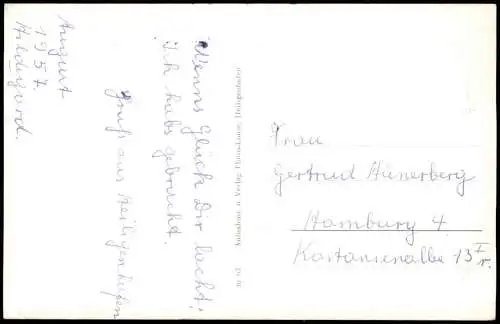 August
1957.
Hildegard.
Wenns Glück Dir lacht!
Ich habs gebracht.
Gruß aus Heiligenhafen
Aufnahme u. Verlag: Heiligenhafen
Frau
Gertrud Hünerberg
Hamburg 4.
Kastanienalbe 13 I r.